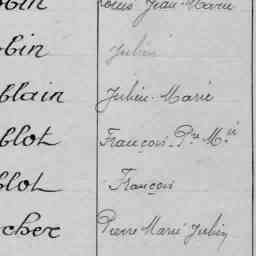 obin Louis Jean-Marie
obin Julien
blain Julien-Marie
blot François-Pre M.ie
blot François
cher Pierre Marie Julien